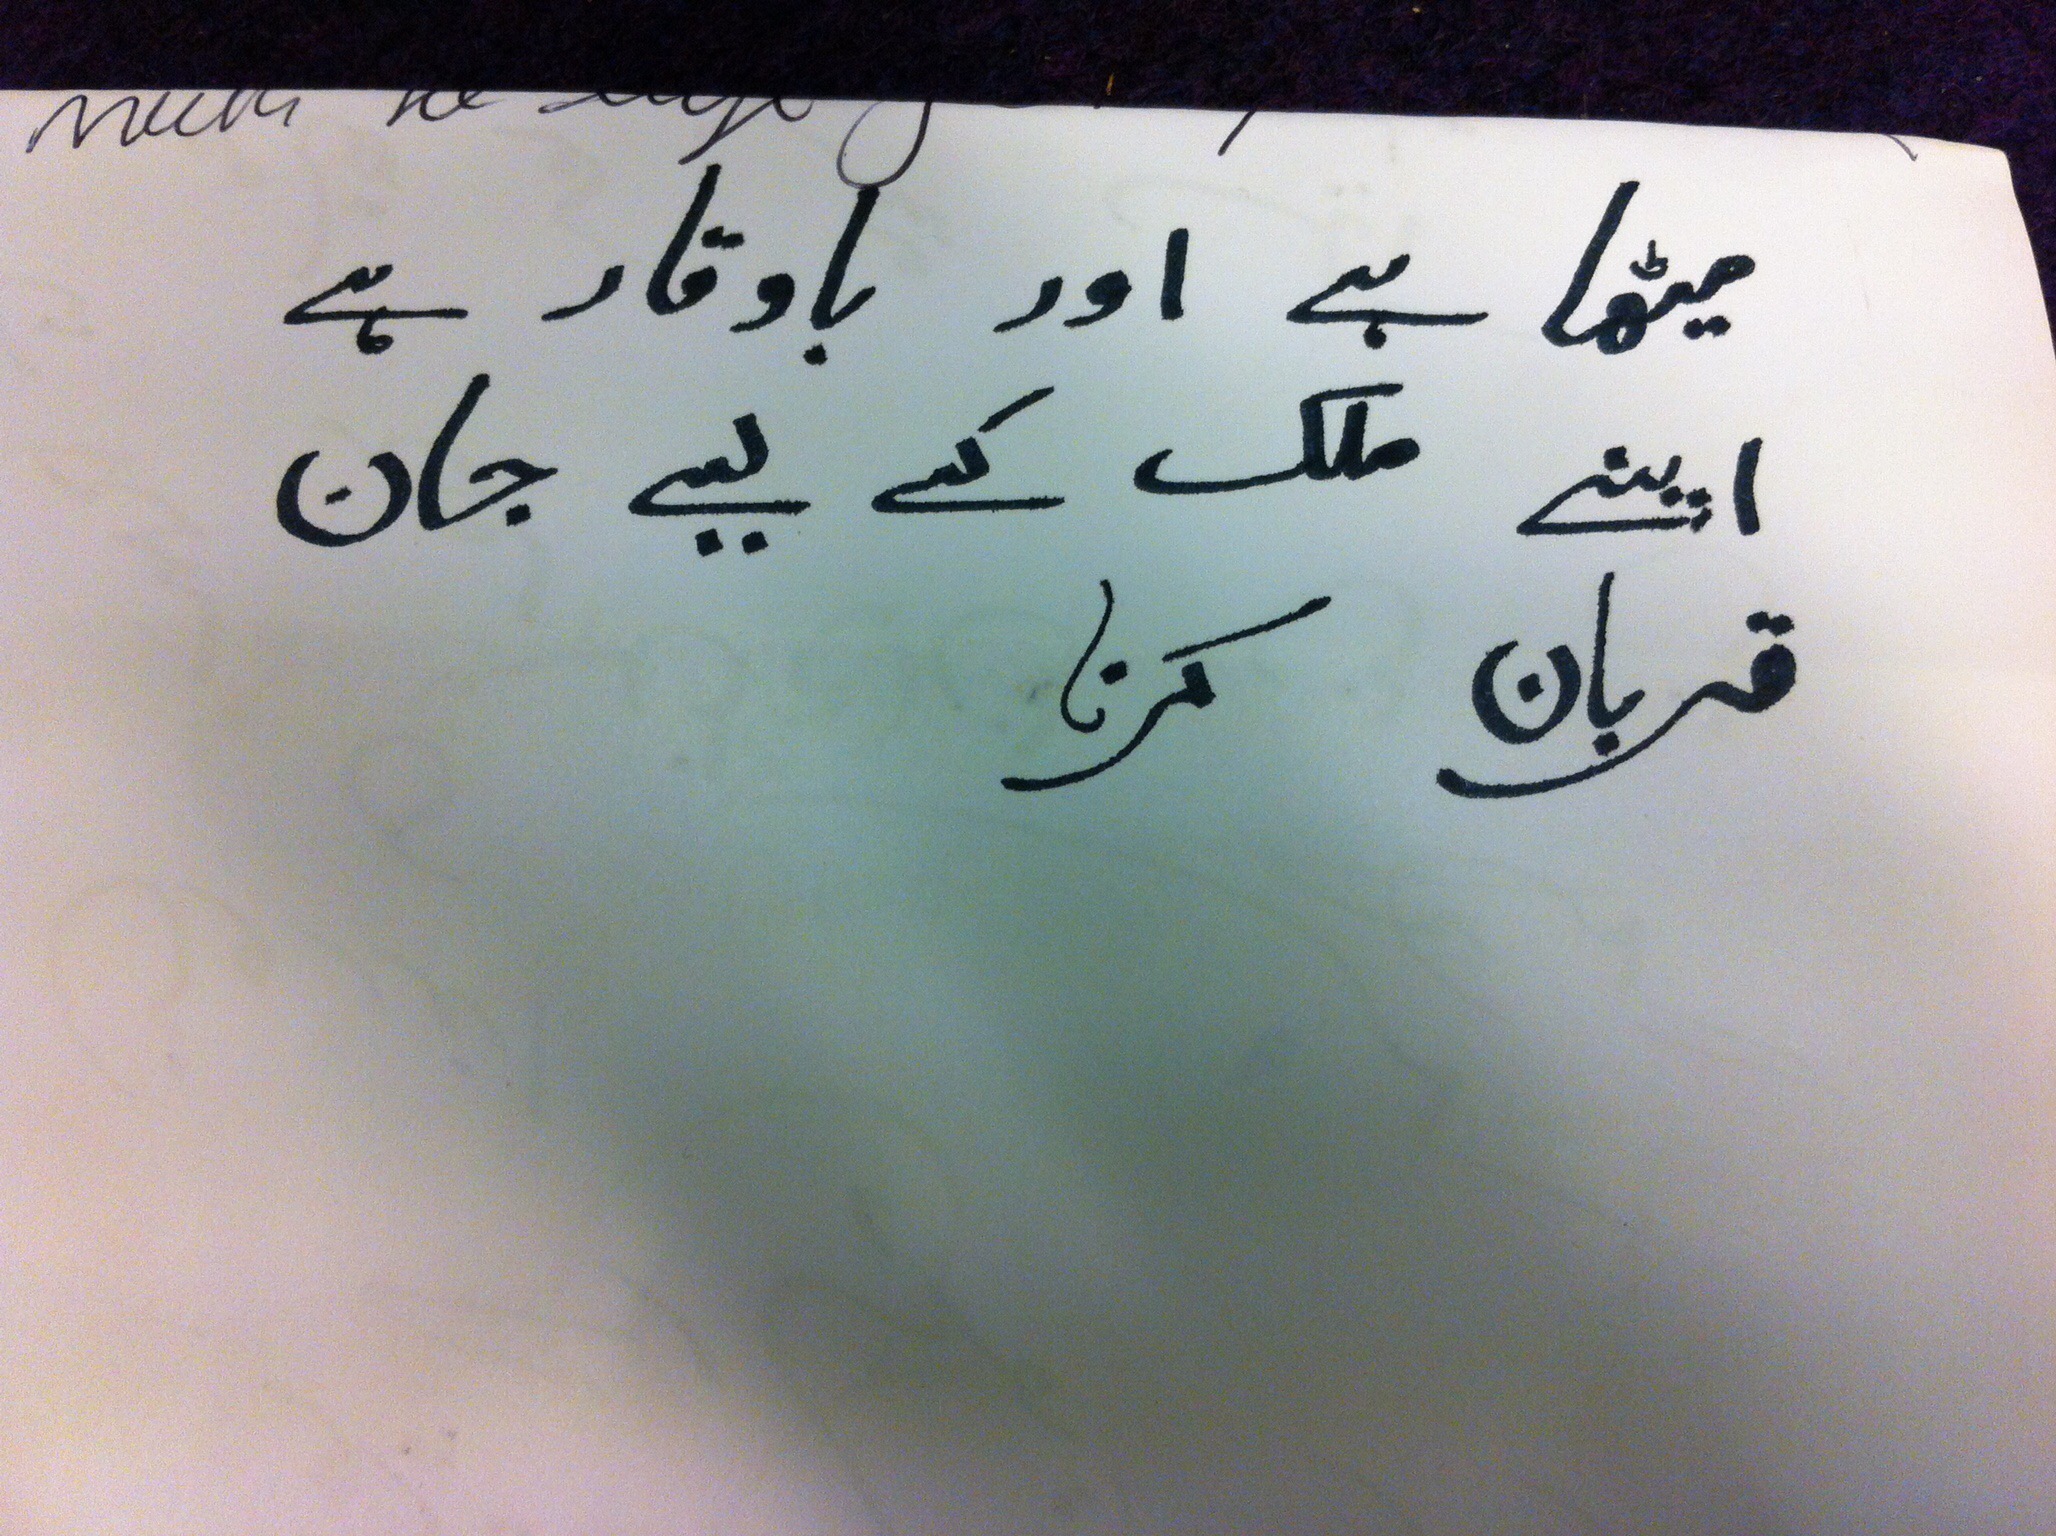 میٹھا ہے اور باوقار ہے
اپنے ملک کے لیے جان
قربان کرنا